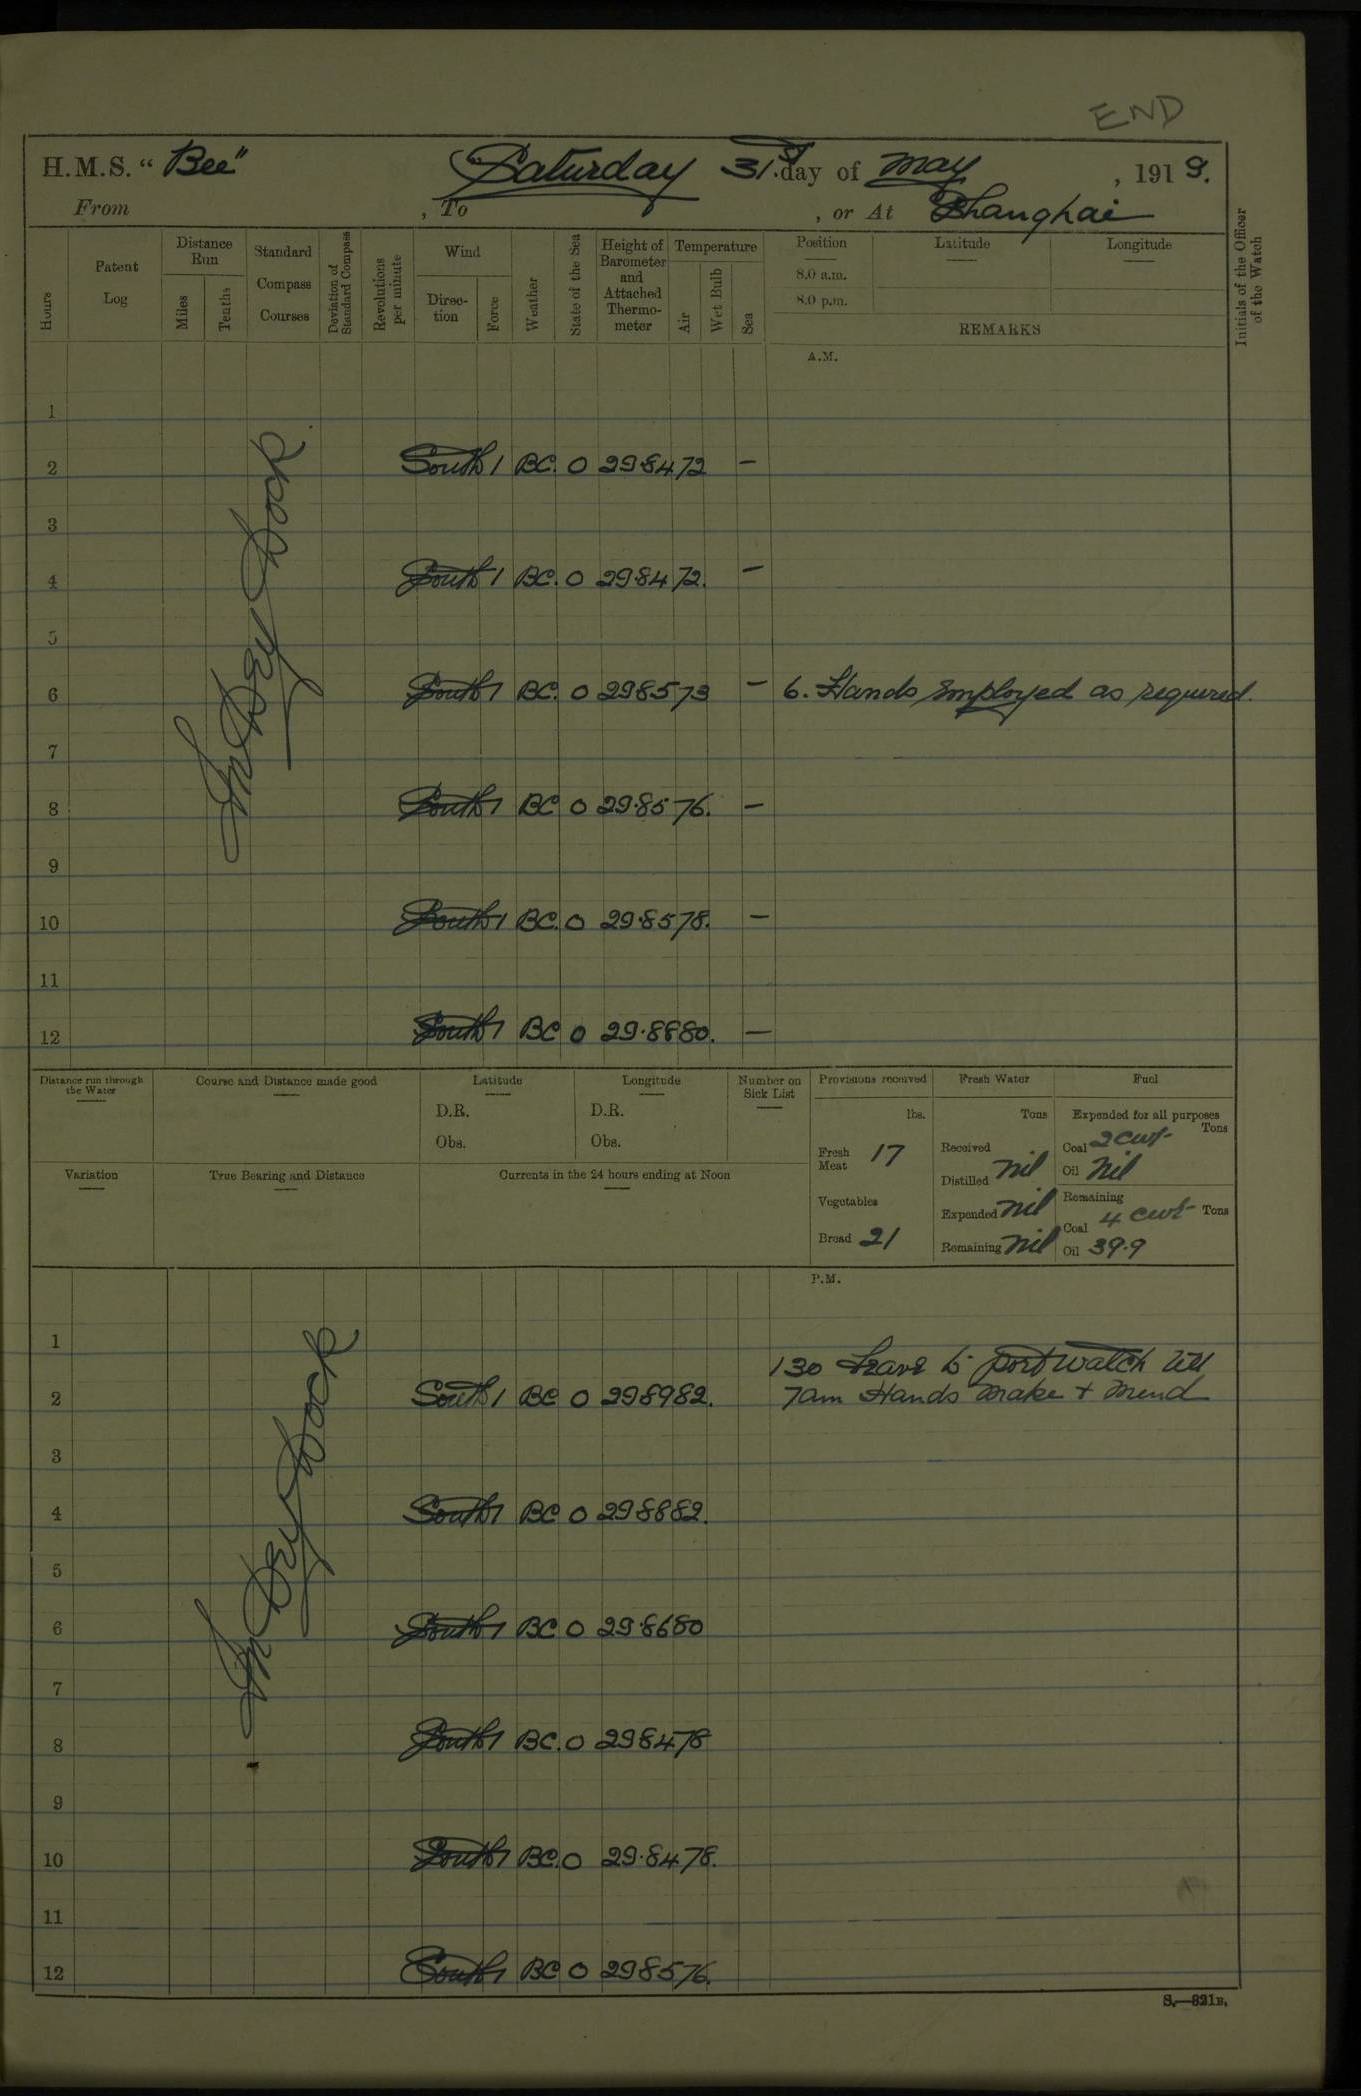 END
H.M.S. "Bee" Saturday 31st day of May, 1919.
From , To , or At Shanghai
Hours
Patent Log
Distance Run
Miles
Tenths
Standard Compass Courses
Deviation of Standard Compass
Revolutions per minute
Wind
Direction
Force
Weather
State of the Sea
Height of Barometer and Attached Thermometer
Temperature
Air
Wet Bulb
Sea
Position
8.0 a.m.
8.0 p.m.
Latitude
Longitude
REMARKS
Initials of the Officer of the Watch
A.M.
In Dry Dock.
1
2 South 1 BC. 0 29.84 72 —
3
4 South 1 BC. 0 29.84 72. —
5
6 South 1 BC. 0 29.85 73 — 6. Hands employed as required.
7
8 South 1 BC 0 29.85 76. —
9
10 South 1 BC. 0 29.85 78. —
11
12 South 1 BC 0 29.88 80. —
Distance run through the Water
Course and Distance made good
Latitude
D.R.
Obs.
Longitude
D.R.
Obs.
Number on Sick List
Provisions received
lbs.
Fresh Meat 17
Vegetables
Bread 21
Fresh Water
Tons
Received
Distilled nil
Expended nil
Remaining nil
Fuel
Expended for all purposes
Tons
Coal 2 cwt
Oil nil
Remaining
Coal 4 cwt Tons
Oil 39.9
Variation
True Bearing and Distance
Currents in the 24 hours ending at Noon
P.M.
In Dry Dock
1
130 Leave to port watch till
2 South 1 BC 0 29.89 82. 7am Hands make + mend
3
4 South 1 BC 0 29.88 82.
5
6 South 1 BC 0 29.86 80
7
8 South 1 BC. 0 29.84 78
9
10 South 1 BC. 0 29.84 78.
11
12 South 1 BC 0 29.85 76.
S.—321B.